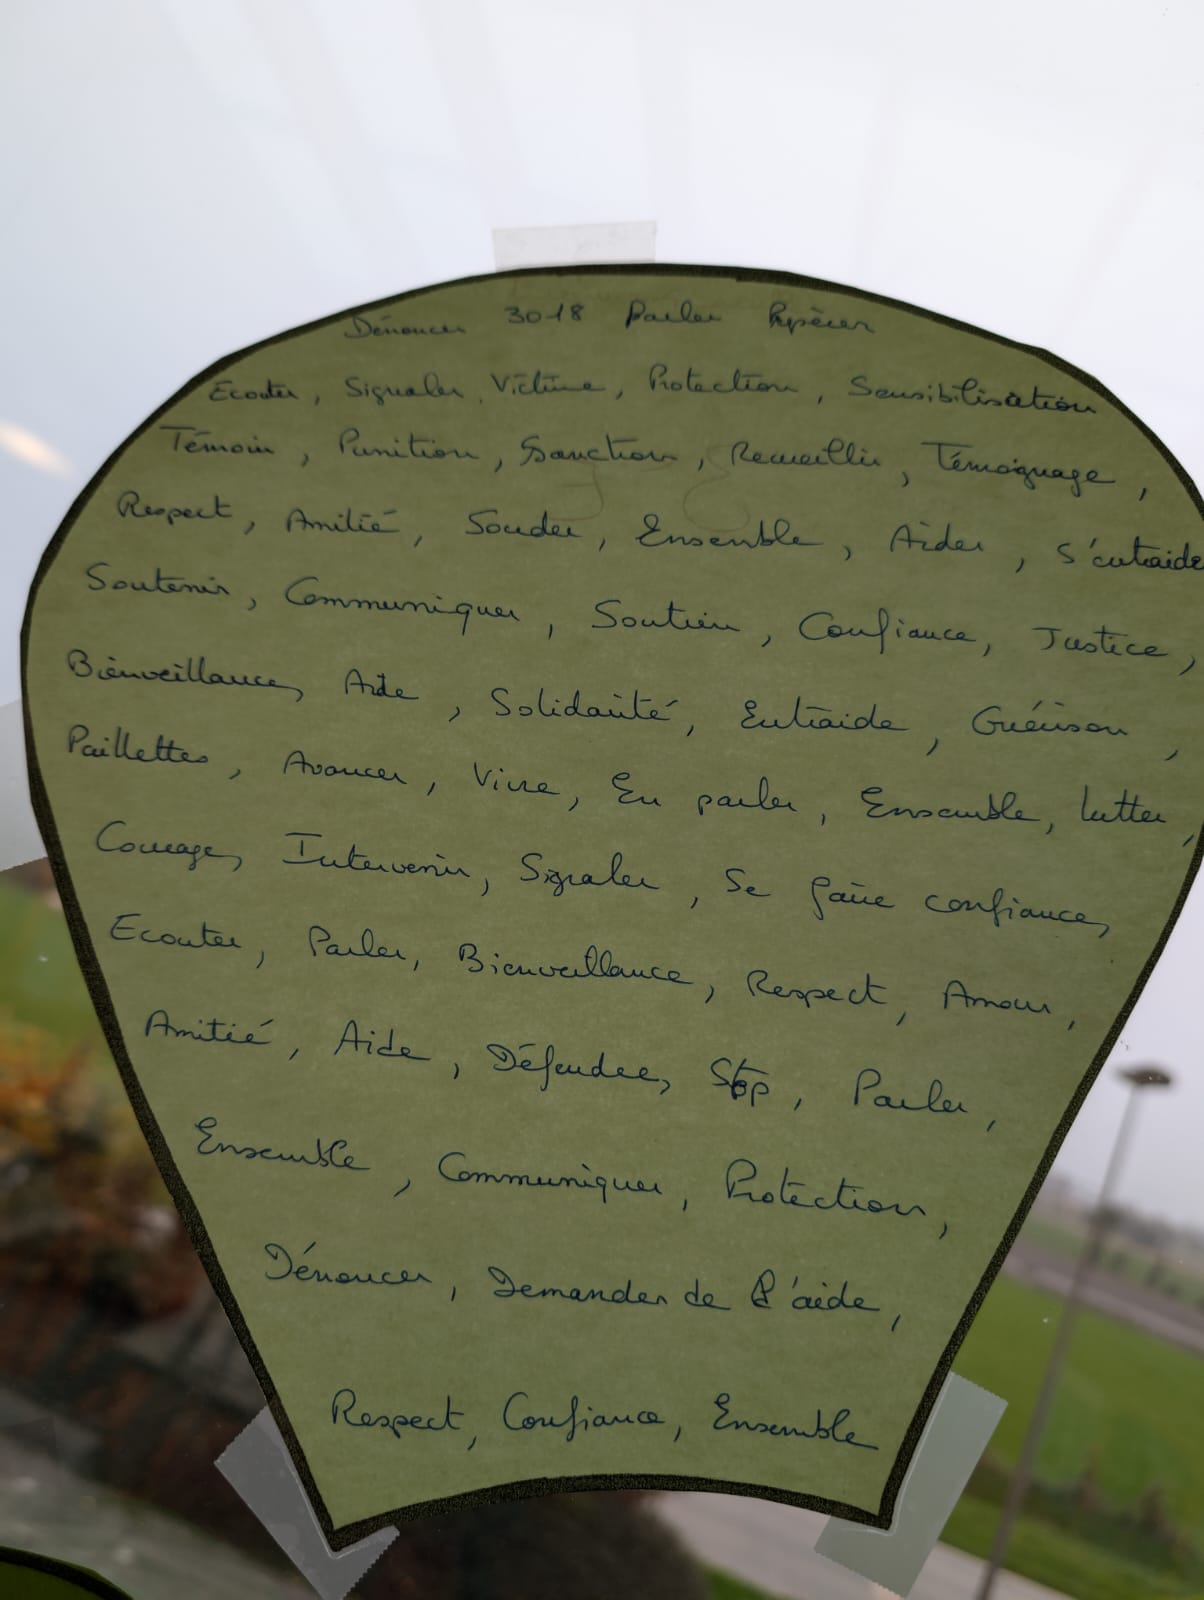 Dénoncer 3018 Parler Repérer
Ecouter, Signaler, Victime, Protection, Sensibilisation
Témoin, Punition, Sanction, Recueillir, Témoignage,
Respect, Amitié, Souder, Ensemble, Aider, S'entraide
Soutenir, Communiquer, Soutien, Confiance, Justice,
Bienveillance, Aide, Solidarité, Entraide, Guérison,
Paillettes, Avancer, Vivre, En parler, Ensemble, lutter,
Courage, Intervenir, Signaler, Se faire confiance,
Ecouter, Parler, Bienveillance, Respect, Amour,
Amitié, Aide, Défendre, Stop, Parler,
Ensemble, Communiquer, Protection,
Dénoncer, Demander de l'aide,
Respect, Confiance, Ensemble